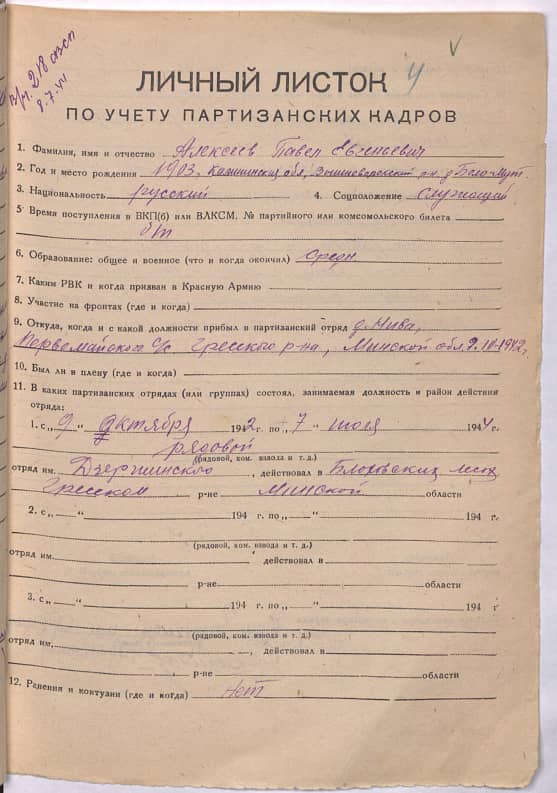 В/ч. 218 азсп
9.7.44
ЛИЧНЫЙ ЛИСТОК
ПО УЧЕТУ ПАРТИЗАНСКИХ КАДРОВ
1. Фамилия, имя и отчество Алексеев Павел Евгеньевич
2. Год и место рождения 1903, Калининская обл, р-н, д.
3. Национальность русский 4. Соцположение Служащий
5 Время поступления в ВКП(б) или ВЛКСМ. № партийного или комсомольского билета
б/п
6. Образование: общее и военное (что и когда окончил) Средн.
7. Каким РВК и когда призван в Красную Армию
8. Участие на фронтах (где и когда)
9. Откуда, когда и с какой должности прибыл в партизанский отряд д. Нива,
Первомайского с/с Гресского р-на, Минской обл, 1942 г.
10. Был ли в плену (где и когда)
11. В каких партизанских отрядах (или группах) состоял, занимаемая должность и район действия
отряда:
1. с „9“ октября 1942 г. по „7“ июля 1944 г.
рядовой
(рядовой, ком. взвода и т. д.)
отряд им. Дзержинского, действовал в лесах
Гресском р-не Минской области
2. с „ “ 194 г. по „ “ 194 г.
(рядовой, ком. взвода и т. д.)
отряд им. , действовал в
р-не области
3. с „ “ 194 г. по „ “ 194 г.
(рядовой, ком. взвода и т. д.)
отряд им. , действовал в
р-не области
12. Ранения и контузии (где и когда) Нет